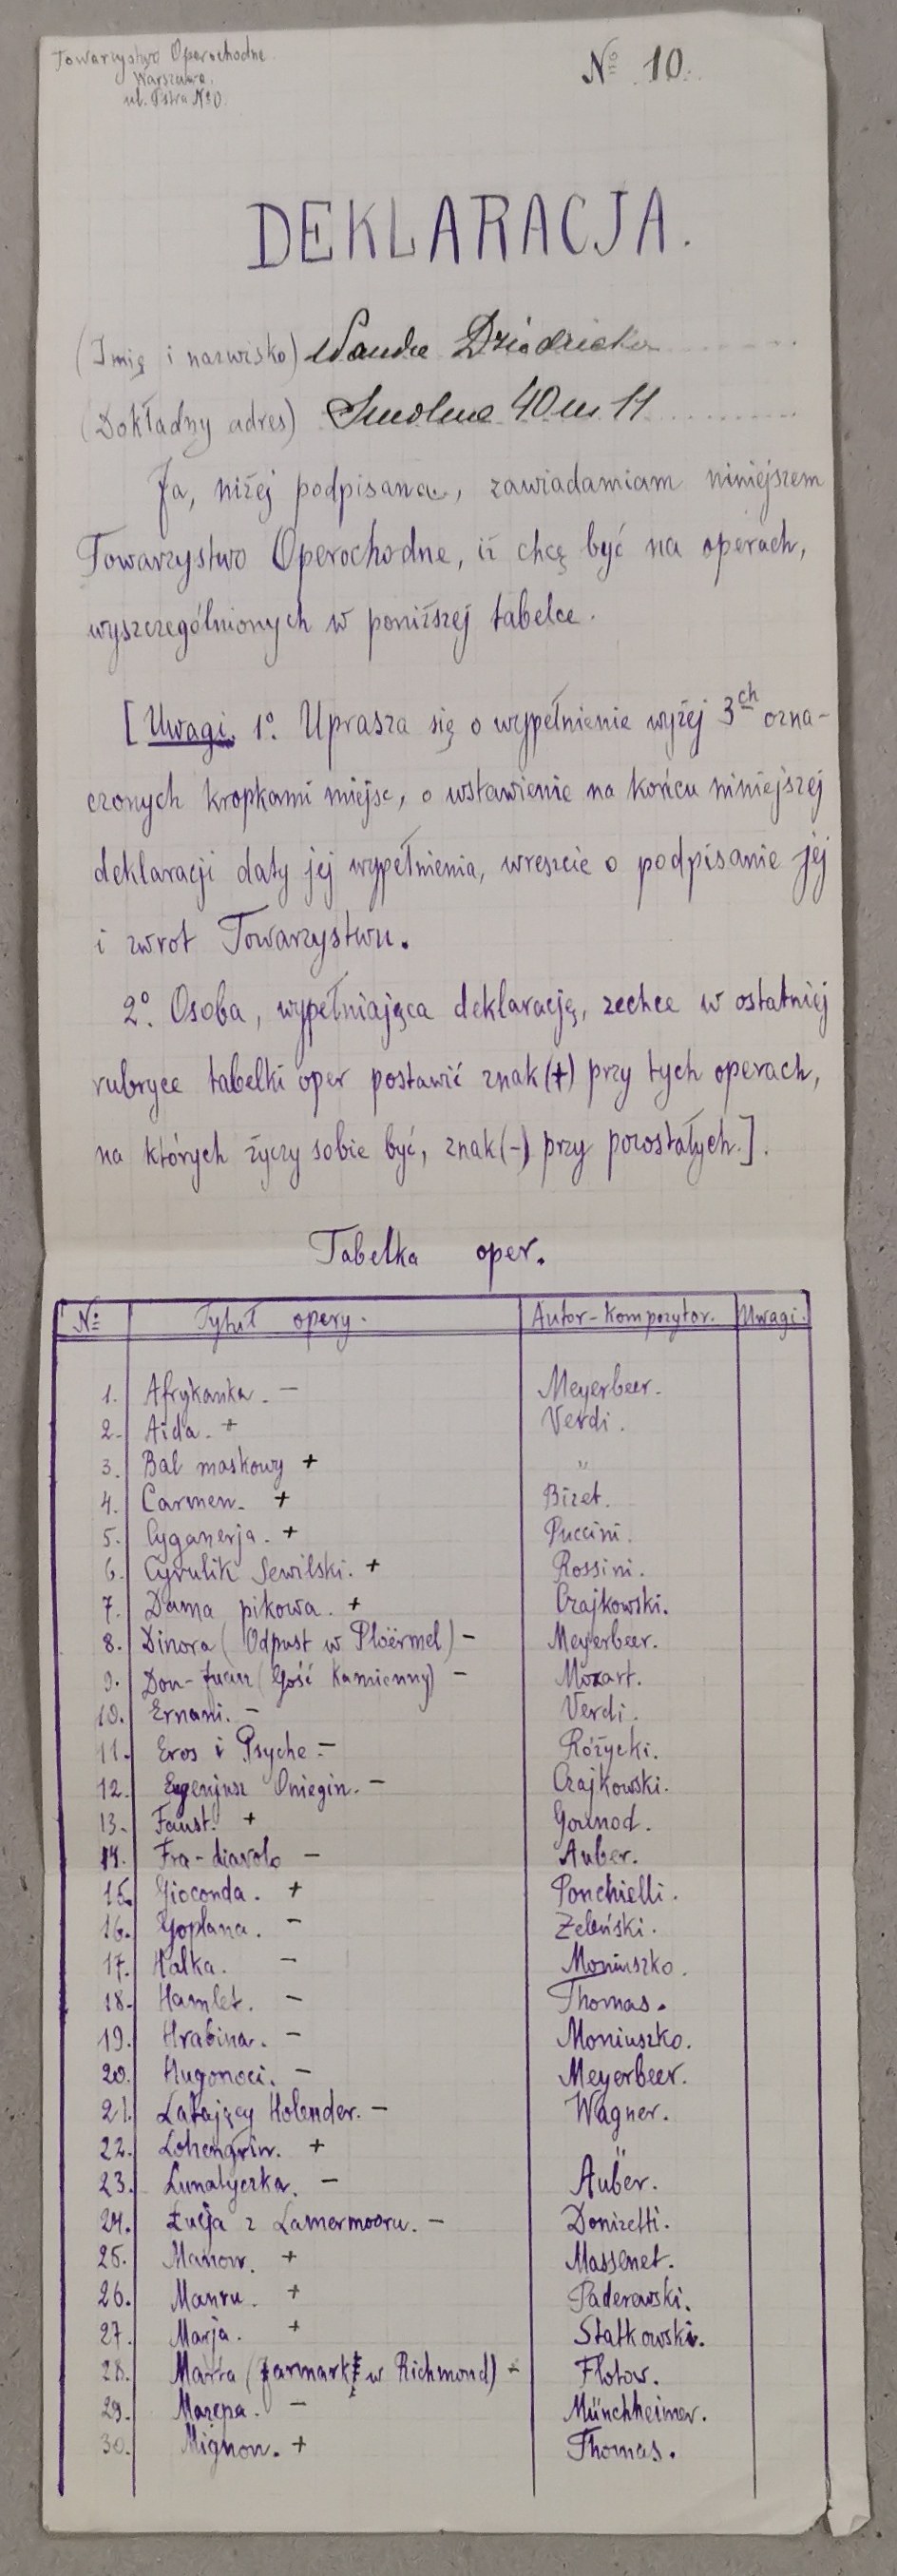 Towarzystwo Operochodne
Warszawa.
№ 10.
DEKLARACJA.
(Imię i nazwisko) Wanda Dziadzicka
(Dokładny adres) Smolna 40 m 11
Ja, niżej podpisana, zawiadamiam niniejszem
Towarzystwo Operochodne, iż chcę być na operach,
wyszczególnionych w poniższej tabelce.
[Uwagi. 1º. Uprasza się o wypełnienie wyżej 3ch ozna-
czonych kropkami miejsc, o wstawienie na końcu niniejszej
deklaracji daty jej wypełnienia, wreszcie o podpisanie jej
i zwrot Towarzystwu.
2º. Osoba, wypełniająca deklarację, zechce w ostatniej
rubryce tabelki oper postawić znak (+) przy tych operach,
na których życzy sobie być, znak (-) przy pozostałych.].
Tabelka oper.
№ Tytuł opery. Autor-kompozytor. Uwagi.
1. Afrykanka. – Meyerbeer.
2. Aida. + Verdi.
3. Bal maskowy + "
4. Carmen. + Bizet.
5. Cyganerja. + Puccini.
6. Cyrulik Sewilski. + Rossini.
7. Dama pikowa. + Czajkowski.
8. Dinora (Odpust w Ploërmel) – Meyerbeer.
9. Don-Juan (Gość Kamienny) – Mozart.
10. Ernani. – Verdi.
11. Eros i Psyche – Różycki.
12. Eugenjusz Oniegin. – Czajkowski.
13. Faust. + Gounod.
14. Fra-diavolo – Auber.
15. Gioconda. + Ponchielli.
16. Goplana. – Żeleński.
17. Halka. – Moniuszko.
18. Hamlet. – Thomas.
19. Hrabina. – Moniuszko.
20. Hugonoci. – Meyerbeer.
21. Latający Holender. – Wagner.
22. Lohengrin. + "
23. Lunatyczka. – Auber.
24. Łucja z Lamermooru. – Donizetti.
25. Manon. + Massenet.
26. Manru. + Paderewski.
27. Marja. + Statkowski.
28. Marta (Jarmark w Richmond) – Flotow.
29. Mazepa. – Münchheimer.
30. Mignon. + Thomas.